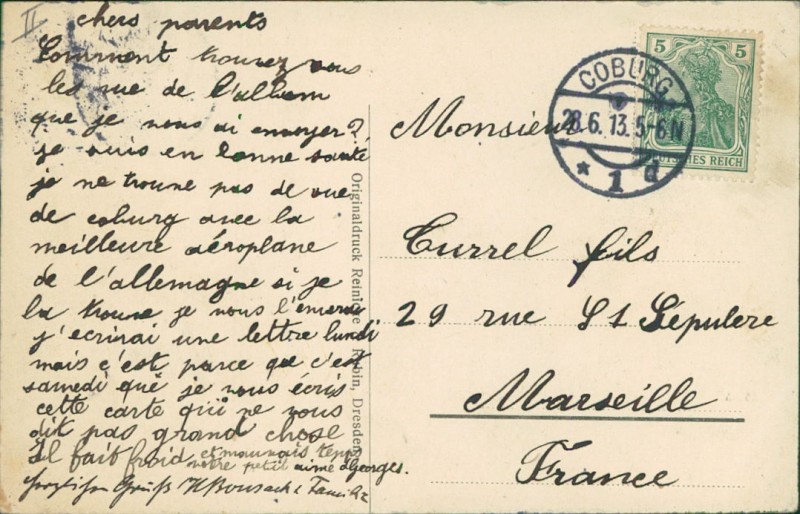 II
chers parents
Comment trouvez vous
les vue de l'album
que je vous ai envoyer?
je suis en bonne santé
je ne trouve pas de vue
de coburg avec la
meilleure aéroplane
de l'allemagne si je
la trouve je vous l'enverai
j'ecrirai une lettre lundi
mais c'est parce que c'est
samedi que je vous écris
cette carte qui ne vous
dit pas grand chose
Il fait froid et mauvais temp
notre petit aimé Georges.
Herzlichen Gruß & Familie
Originaldruck Rubin, Dresden
Monsieur
Currel fils
29 rue St Sépulcre
Marseille
France
COBURG
28.6.13.5-6N
* 1 d
5 5
DEUTSCHES REICH